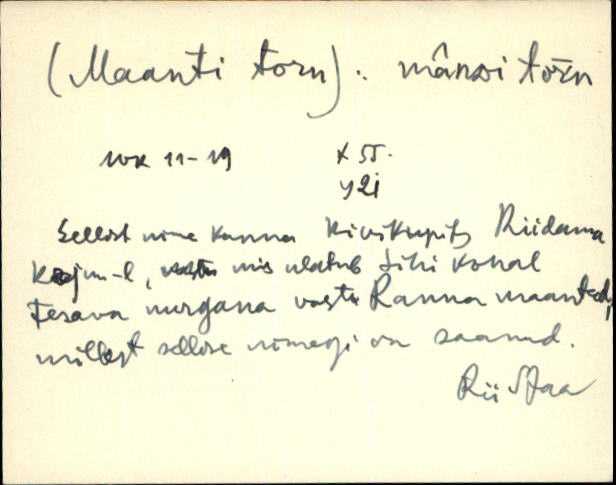 (Maanti torn): mânsi tōrn
11-19 x 55.
y 2i
Sellist nime kannab kivikupits Riidama
mis ulatub sihi kohal
Terava nurgana vastu Ranna maanteed,
millest sellise nimegi on saanud.
Rii